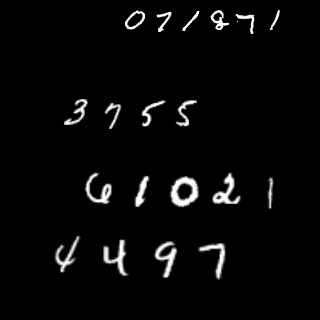 071871
3755
61021
4497